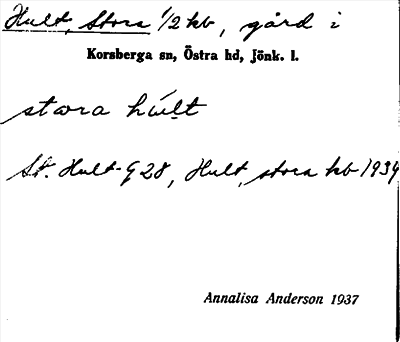 Hult, Stora 1/2 kb, gård i
Korsberga sn, Östra hd, Jönk. l.
stora hult
St. Hult G 28, Hult, stora kb 1934
Annalisa Anderson 1937